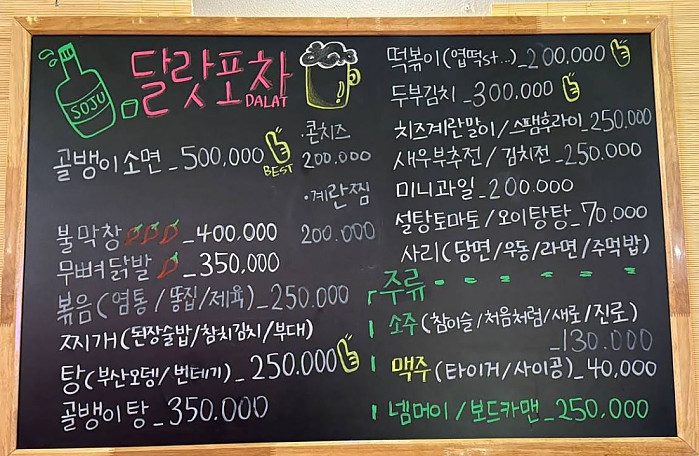 SOJU
달랏포차
DALAT
골뱅이소면_500,000
BEST
·콘치즈
200.000
·계란찜
200.000
불막창_400,000
무뼈닭발_350,000
볶음(염통/똥집/제육)_250.000
찌개(된장술밥/참치김치/부대)
탕(부산오뎅/번데기)_250.000
골뱅이탕_350.000
떡볶이(엽떡st...)_200,000
두부김치_300,000
치즈계란말이/스팸후라이_250.000
새우부추전/김치전_250.000
미니과일_200.000
설탕토마토/오이탕탕_70.000
사리(당면/우동/라면/주먹밥)
주류
소주(참이슬/처음처럼/새로/진로)
_130.000
맥주(타이거/사이공)_40,000
넵머이/보드카맨_250,000